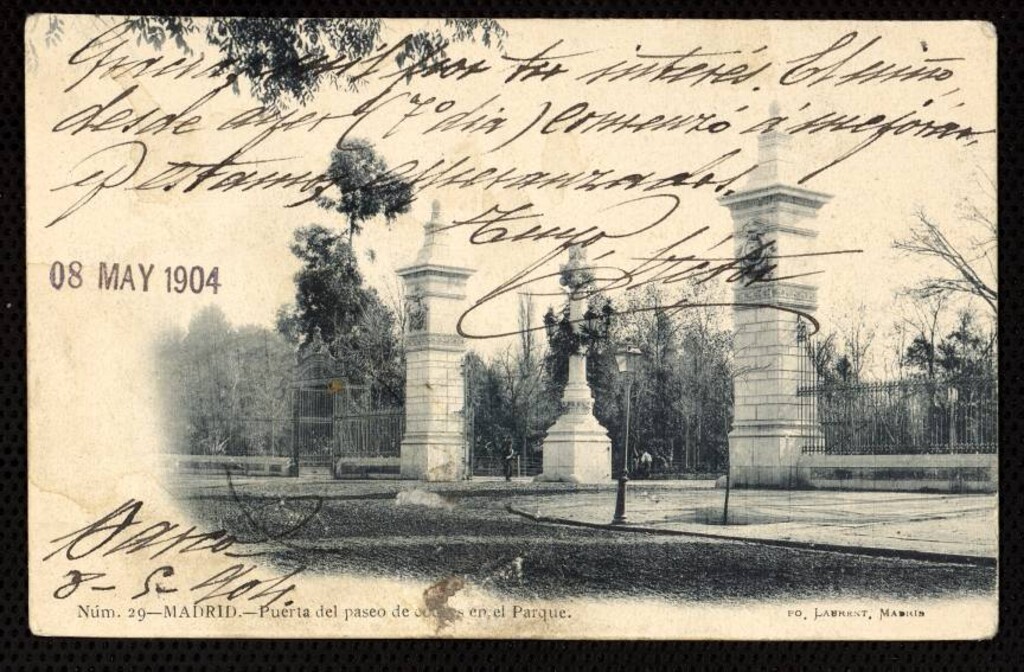 Gracias, mil por tu interés. El niño,
desde ayer (7º día) comenzó á mejorar,
y estamos esperanzados.
Tuyo
08 MAY 1904
8-5-904.
Núm. 29—MADRID.—Puerta del paseo de coches en el Parque.
PO. LAURENT, MADRID